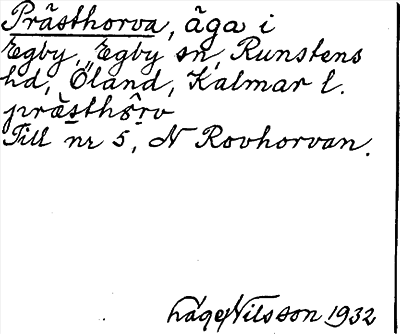 Prästhorva, äga i
Egby, Egby sn, Runstens
hd, Öland, Kalmar l.
prästhörv
Till nr 5, N Rovhorvan.
Nilsson 1932